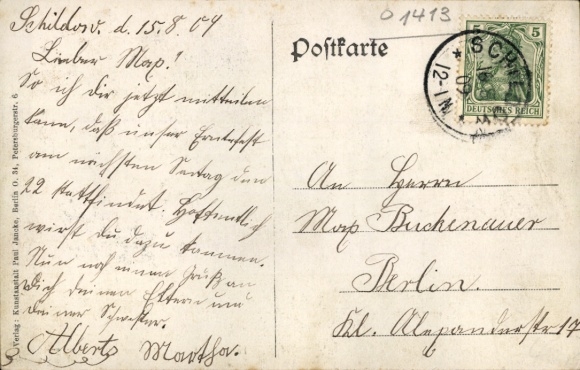 Schildow. d. 15.8.09
Lieber Max!
So ich dir jetzt mitteilen
kann, daß unser Erntefest
am nächsten Sontag den
22 stattfindet. Hoffentlich
wirst du dazu kommen.
Nun noch einen Gruß an
Dich deinen Eltern und
deiner Schwester.
Albert Martha.
Verlag: Kunstanstalt Paul Jancke, Berlin O. 34, Petersburgerstr. 6
01413
Postkarte
5
DEUTSCHES REICH
12-1N
An Herrn
Max Buchenauer
Berlin.
Kl. Alexanderstr 17